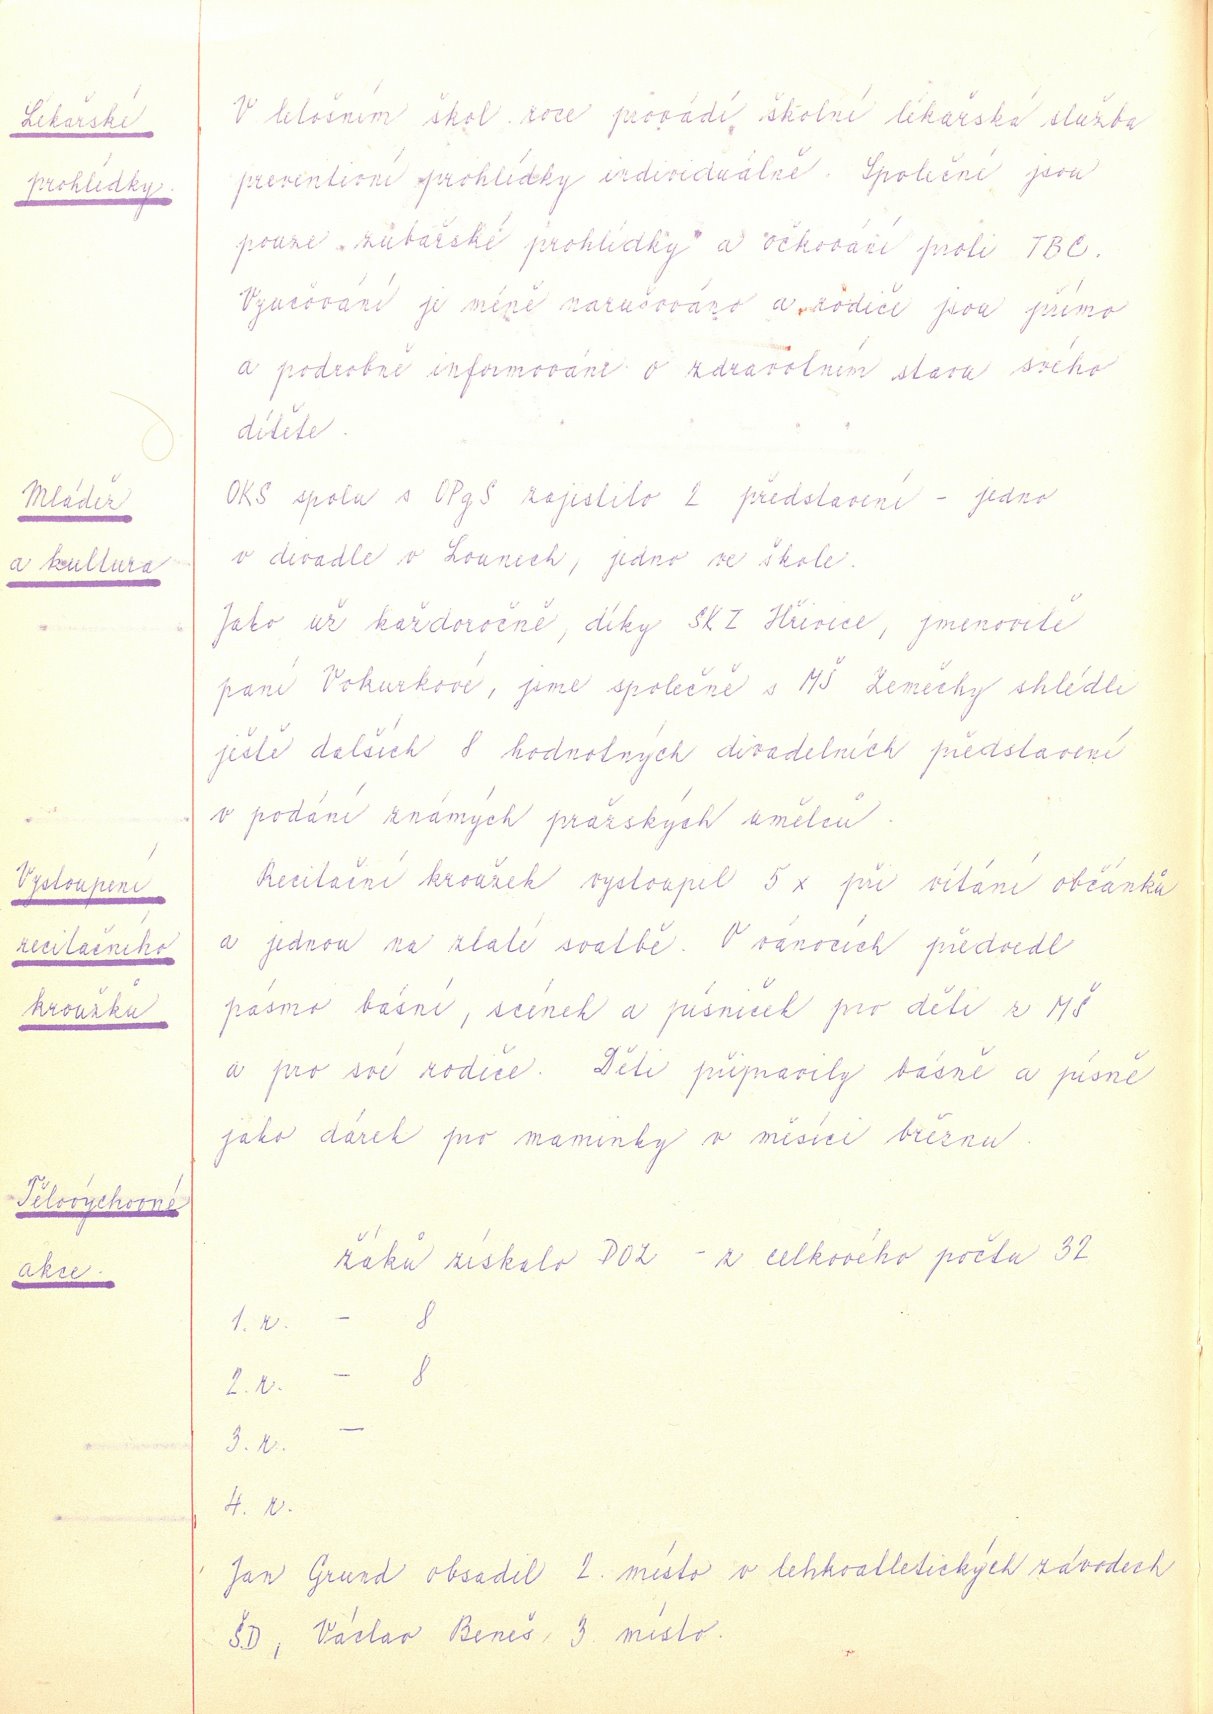 Lékařské
prohlídky.
V letošním škol. roce provádí školní lékařská služba
preventivní prohlídky individuálně. Společné jsou
pouze zubařské prohlídky a očkování proti TBC.
Vyučování je méně narušováno a rodiče jsou přímo
a podrobně informováni o zdravotním stavu svého
dítěte.
Mládež
a kultura
OKS spolu s OPgS zajistilo 2 představení - jedno
v divadle v Lounech, jedno ve škole.
Jako už každoročně, díky SKZ Hřivice, jmenovitě
paní Vokurkové, jsme společně s MŠ Zeměchy shlédli
ještě dalších 8 hodnotných divadelních představení
v podání známých pražských umělců.
Vystoupení
recitačního
kroužku
Recitační kroužek vystoupil 5 x při vítání občánků
a jednou na zlaté svatbě. O vánocích předvedl
pásmo básní, scének a písniček pro děti z MŠ
a pro své rodiče. Děti připravily básně a písně
jako dárek pro maminky v měsíci březnu.
Tělovýchovné
akce.
žáků získalo POZ - z celkového počtu 32
1. r. - 8
2. r. - 8
3. r. -
4. r.
Jan Grund obsadil 2. místo v lehkoatletických závodech
ŠD, Václav Beneš 3. místo.